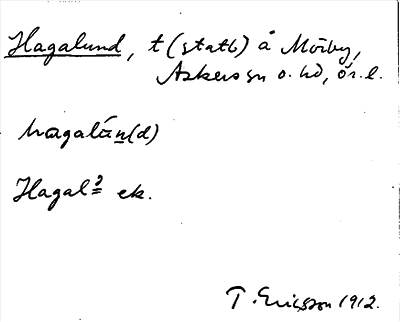 Hagalund, t (statb) å Mörby,
Askers sn o. hd, ör. l.
hagalán(d)
Hagal? ek.
T. Ericsson 1912.